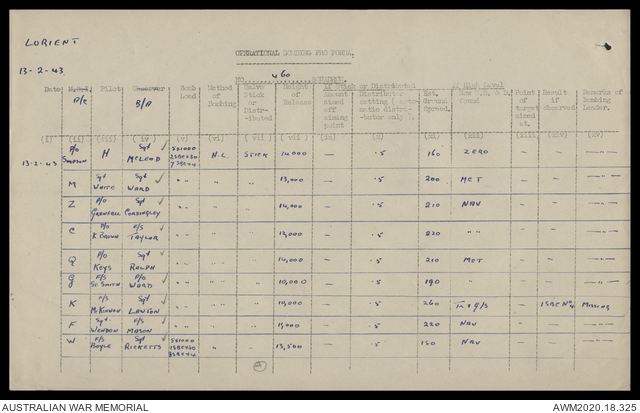 LORIENT
13-2-43.
OPERATIONAL BOMBING PRO FORMA.
NO. 460 SQUADRON.
Date Pilot Bomb Load Method of Bombing Salvo Stick or Distributed Height of Release Amount aimed off aiming point Distributor setting (automatic distributor only) Met. Ground Speed. How found Point of target aimed at. Result if observed Remarks of Bombing Leader.
A/C B/A
(i) (ii) (iii) (iv) (v) (vi) (vii) (ix) (x) (xi) (xii) (xiii) (xiv) (xv)
13-2-43 H P/O Simpson Sgt McLeod 5x1000 H.L. Stick 14,000 — .5 160 ZERO — — —
M Sgt White Sgt Ward " " " " 13,000 — .5 200 MET — — —
Z P/O Grenfell Sgt Cordingley " " " " 14,000 — .5 210 NAV — — —
C P/O K Brown F/S Taylor " " " " 13,000 — .5 220 " " — — —
Q P/O Keys Sgt Ralph " " " " 14,000 — .5 210 MET — — —
G F/S St Smith P/O Ward " " " " 10,000 — .5 190 " — — —
K F/S McKinnon Sgt Lawton " " " " 10,000 — .5 260 — Missing
F Sgt Wendon F/S Mason " " " " — .5 220 NAV — — —
W F/S Boyle Sgt Ricketts 5x1000 " " 13,500 — .5 150 NAV — — —
AUSTRALIAN WAR MEMORIAL AWM2020.18.325